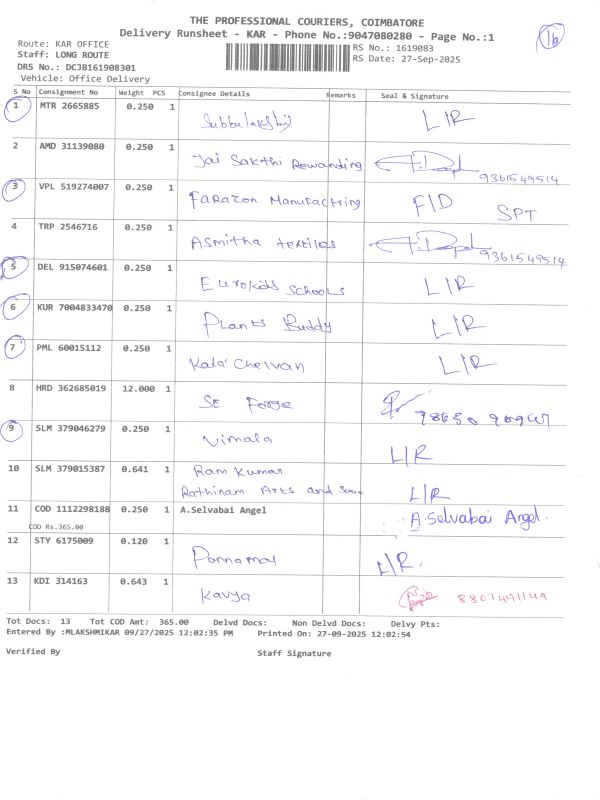 THE PROFESSIONAL COURIERS, COIMBATORE
Delivery Runsheet - KAR - Phone No.:9047080280 - Page No.:1
16
Route: KAR OFFICE
RS No.: 1619083
Staff: LONG ROUTE
RS Date: 27-Sep-2025
DRS No.: DCJB161908301
Vehicle: Office Delivery
S No Consignment No Weight PCS Consignee Details Remarks Seal & Signature
1 MTR 2665885 0.250 1 Subbulakshmi L/R
2 AMD 31139080 0.250 1 Jai Sakthi Rewanding 9361549514
3 VPL 519274007 0.250 1 Farazon Manufactring F/D SPT
4 TRP 2546716 0.250 1 Asmitha textiles 9361549514
5 DEL 915074601 0.250 1 Eurokids Schools L/R
6 KUR 7004833470 0.250 1 Plants Buddy L/R
7 PML 60015112 0.250 1 Kalai Chelvan L/R
8 HRD 362685019 12.000 1 SE Forge
9 SLM 379046279 0.250 1 Vimala L/R
10 SLM 379015387 0.641 1 Ram Kumar
Rathinam Arts and L/R
11 COD 1112298188 0.250 1 A.Selvabai Angel A.Selvabai Angel.
COD Rs.365.00
12 STY 6175009 0.120 1 L/R.
13 KDI 314163 0.643 1 Kavya 8807491149
Tot Docs: 13 Tot COD Amt: 365.00 Delvd Docs: Non Delvd Docs: Delvy Pts:
Entered By :MLAKSHMIKAR 09/27/2025 12:02:35 PM Printed On: 27-09-2025 12:02:54
Verified By Staff Signature